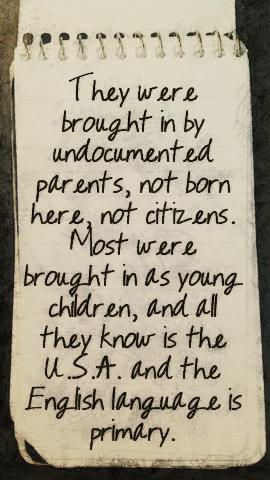 They were
brought in by
undocumented
parents, not born
here, not citizens.
Most were
brought in as young
children, and all
they know is the
U.S.A. and the
English language is
primary.